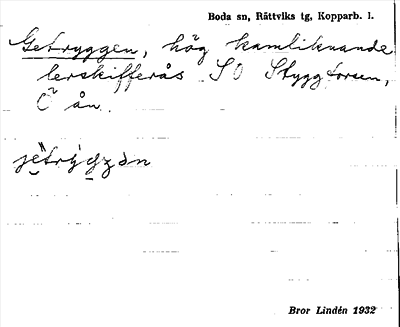 Boda sn, Rättviks tg, Kopparb. l.
Getryggen, hög kamliknande
lerskifferås S O Styggforsen,
Ö ån.
Bror Lindén 1932